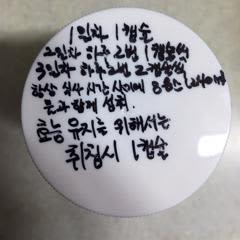 1일차 1캡슐
2일차 하루 2번 1캡슐씩
3일차 하루 2번 2캡슐씩
항상 식사 시간 사이에 8온스 (240ml)
물과 함께 섭취.
효능 유지를 위해서는
취침시 1캡슐